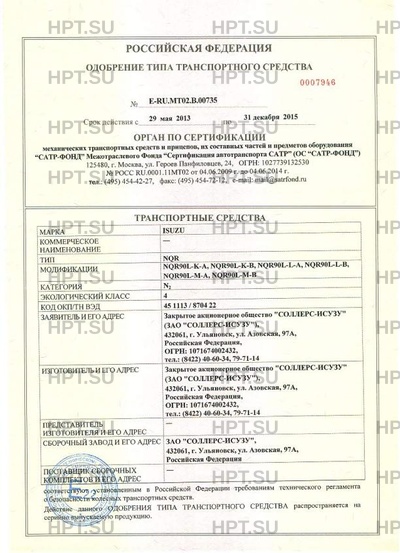 HPT.SU HPT.SU HPT.SU
РОССИЙСКАЯ ФЕДЕРАЦИЯ
ОДОБРЕНИЕ ТИПА ТРАНСПОРТНОГО СРЕДСТВА
0007946
№ E-RU.MT02.B.00735
Срок действия с 29 мая 2013 по 31 декабря 2015
ОРГАН ПО СЕРТИФИКАЦИИ
механических транспортных средств и прицепов, их составных частей и предметов оборудования
"САТР-ФОНД" Межотраслевого Фонда "Сертификация автотранспорта САТР" (ОС "САТР-ФОНД")
125480, г. Москва, ул. Героев Панфиловцев, 24, ОГРН: 1027739132530
№ РОСС RU.0001.11МТ02 от 04.06.2009 г. до 04.06.2014 г.
тел.: (495) 454-42-27, факс: (495) 454-72-12, e-mail: mail@satrfond.ru
ТРАНСПОРТНЫЕ СРЕДСТВА
МАРКА ISUZU
КОММЕРЧЕСКОЕ НАИМЕНОВАНИЕ —
ТИП NQR
МОДИФИКАЦИИ NQR90L-K-A, NQR90L-K-B, NQR90L-L-A, NQR90L-L-B,
NQR90L-M-A, NQR90L-M-B
КАТЕГОРИЯ N₂
ЭКОЛОГИЧЕСКИЙ КЛАСС 4
КОД ОКП/ТН ВЭД 45 1113 / 8704 22
ЗАЯВИТЕЛЬ И ЕГО АДРЕС Закрытое акционерное общество "СОЛЛЕРС-ИСУЗУ"
(ЗАО "СОЛЛЕРС-ИСУЗУ"),
432061, г. Ульяновск, ул. Азовская, 97А,
Российская Федерация,
ОГРН: 1071674002432,
тел.: (8422) 40-60-34, 79-71-14
ИЗГОТОВИТЕЛЬ И ЕГО АДРЕС Закрытое акционерное общество "СОЛЛЕРС-ИСУЗУ"
(ЗАО "СОЛЛЕРС-ИСУЗУ"),
432061, г. Ульяновск, ул. Азовская, 97А,
Российская Федерация,
ОГРН: 1071674002432,
тел.: (8422) 40-60-34, 79-71-14
ПРЕДСТАВИТЕЛЬ
ИЗГОТОВИТЕЛЯ И ЕГО АДРЕС —
СБОРОЧНЫЙ ЗАВОД И ЕГО АДРЕС ЗАО "СОЛЛЕРС-ИСУЗУ",
432061, г. Ульяновск, ул. Азовская, 97А,
Российская Федерация
ПОСТАВЩИК СБОРОЧНЫХ
КОМПЛЕКТОВ И ЕГО АДРЕС —
соответствуют установленным в Российской Федерации требованиям технического регламента
о безопасности колесных транспортных средств.
Действие данного ОДОБРЕНИЯ ТИПА ТРАНСПОРТНОГО СРЕДСТВА распространяется на
серийно выпускаемую продукцию.
HPT.SU HPT.SU HPT.SU